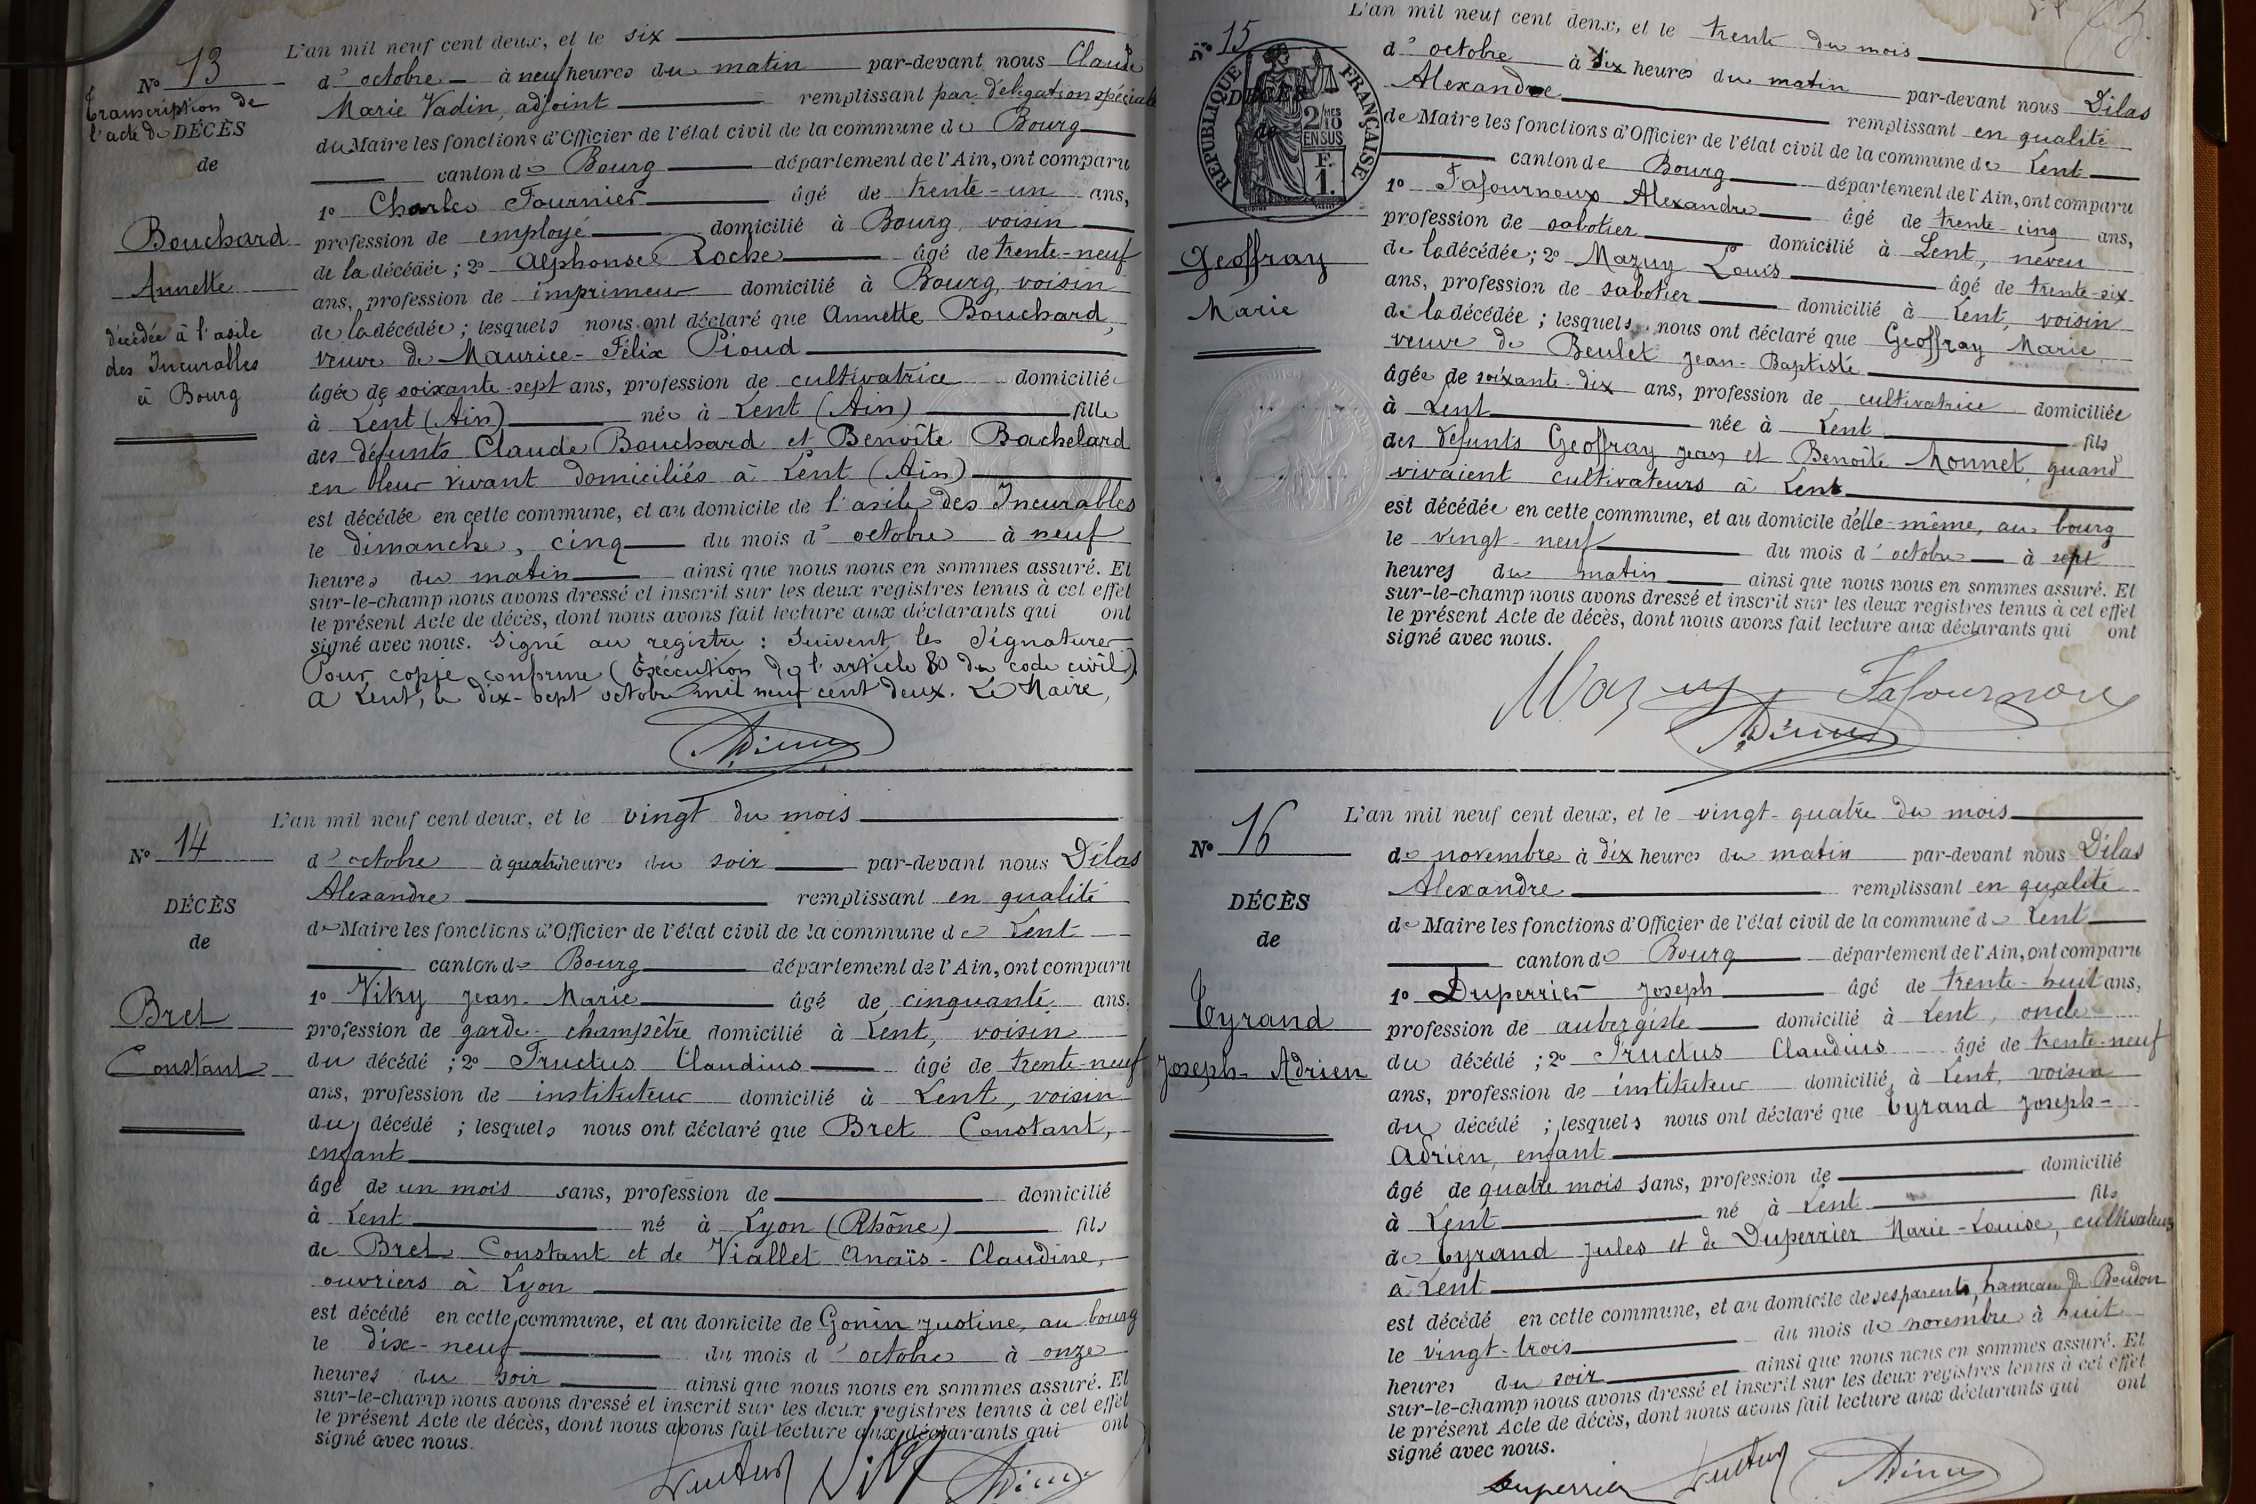 L'an mil neuf cent deux, et le six
N° 13
d'octobre à neuf heures du matin par-devant nous Claude
Transcription de
l'acte de DÉCÈS
de
Marie Vadin, adjoint remplissant par délégation spéciale
du Maire les fonctions d'Officier de l'état civil de la commune de Bourg
canton de Bourg département de l'Ain, ont comparu
1° Charles Fournier âgé de trente-un ans,
Bouchard
Annette
décédée à l'asile
des Incurables
à Bourg
profession de employé domicilié à Bourg, voisin
de la décédée ; 2° Alphonse Roche âgé de trente-neuf
ans, profession de imprimeur domicilié à Bourg, voisin
de la décédée ; lesquels nous ont déclaré que Annette Bouchard,
veuve de Maurice-Félix Pioud
âgée de soixante-sept ans, profession de cultivatrice domiciliée
à Lent (Ain) née à Lent (Ain) fille
des défunts Claude Bouchard et Benoîte Bachelard
en leur vivant domiciliés à Lent (Ain)
est décédée en cette commune, et au domicile de l'asile des Incurables
le dimanche, cinq du mois d'octobre à neuf
heures du matin ainsi que nous nous en sommes assuré. Et
sur-le-champ nous avons dressé et inscrit sur les deux registres tenus à cet effet
le présent Acte de décès, dont nous avons fait lecture aux déclarants qui ont
signé avec nous. Signé au registre : Suivent les Signatures
Pour copie conforme (Exécution de l'article 80 du code civil)
A Lent, le dix-sept octobre mil neuf cent deux. Le Maire,
L'an mil neuf cent deux, et le vingt du mois
N° 14
DÉCÈS
de
Bret
Constant
d'octobre à quatre heures du soir par-devant nous Dilas
Alexandre remplissant en qualité
de Maire les fonctions d'Officier de l'état civil de la commune de Lent
canton de Bourg département de l'Ain, ont comparu
1° Vitry Jean-Marie âgé de cinquante ans,
profession de garde-champêtre domicilié à Lent, voisin
du décédé ; 2° Fructus Claudius âgé de trente-neuf
ans, profession de instituteur domicilié à Lent, voisin
du décédé ; lesquels nous ont déclaré que Bret Constant,
enfant
âgé de un mois sans, profession de domicilié
à Lent né à Lyon (Rhône) fils
de Bret Constant et de Viallet Anaïs-Claudine,
ouvriers à Lyon
est décédé en cette commune, et au domicile de Gonin Justine, au bourg
le dix-neuf du mois d'octobre à onze
heures du soir ainsi que nous nous en sommes assuré. Et
sur-le-champ nous avons dressé et inscrit sur les deux registres tenus à cet effet
le présent Acte de décès, dont nous avons fait lecture aux déclarants qui ont
signé avec nous.
Fructus Vitry
L'an mil neuf cent deux, et le trente du mois
N° 15
DÉCÈS
de
RÉPUBLIQUE FRANÇAISE
2/10 MES
EN SUS
F.
1.
Geoffray
Marie
d'octobre à dix heures du matin par-devant nous Dilas
Alexandre remplissant en qualité
de Maire les fonctions d'Officier de l'état civil de la commune de Lent
canton de Bourg département de l'Ain, ont comparu
1° Fafournoux Alexandre âgé de trente-cinq ans,
profession de sabotier domicilié à Lent, neveu
de la décédée ; 2° Mazuy Louis âgé de trente-six
ans, profession de sabotier domicilié à Lent, voisin
de la décédée ; lesquels nous ont déclaré que Geoffray Marie
veuve de Beulet Jean-Baptiste
âgée de soixante-dix ans, profession de cultivatrice domiciliée
à Lent née à Lent fils
des défunts Geoffray Jean et Benoîte Monnet, quand
vivaient cultivateurs à Lent
est décédée en cette commune, et au domicile d'elle-même, au bourg
le vingt-neuf du mois d'octobre à sept
heures du matin ainsi que nous nous en sommes assuré. Et
sur-le-champ nous avons dressé et inscrit sur les deux registres tenus à cet effet
le présent Acte de décès, dont nous avons fait lecture aux déclarants qui ont
signé avec nous.
Mazuy Fafournoux
L'an mil neuf cent deux, et le vingt-quatre du mois
N° 16
DÉCÈS
de
Tyrand
Joseph-Adrien
de novembre à dix heures du matin par-devant nous Dilas
Alexandre remplissant en qualité
de Maire les fonctions d'Officier de l'état civil de la commune de Lent
canton de Bourg département de l'Ain, ont comparu
1° Duperrier Joseph âgé de trente-huit ans,
profession de aubergiste domicilié à Lent, oncle
du décédé ; 2° Fructus Claudius âgé de trente-neuf
ans, profession de instituteur domicilié à Lent, voisin
du décédé ; lesquels nous ont déclaré que Tyrand Joseph-
Adrien, enfant
âgé de quatre mois sans, profession de domicilié
à Lent né à Lent fils
de Tyrand Jules et de Duperrier Marie-Louise, cultivateurs
à Lent
est décédé en cette commune, et au domicile de ses parents, hameau de Boudon
le vingt-trois du mois de novembre à huit
heures du soir ainsi que nous nous en sommes assuré. Et
sur-le-champ nous avons dressé et inscrit sur les deux registres tenus à cet effet
le présent Acte de décès, dont nous avons fait lecture aux déclarants qui ont
signé avec nous.
Duperrier Fructus